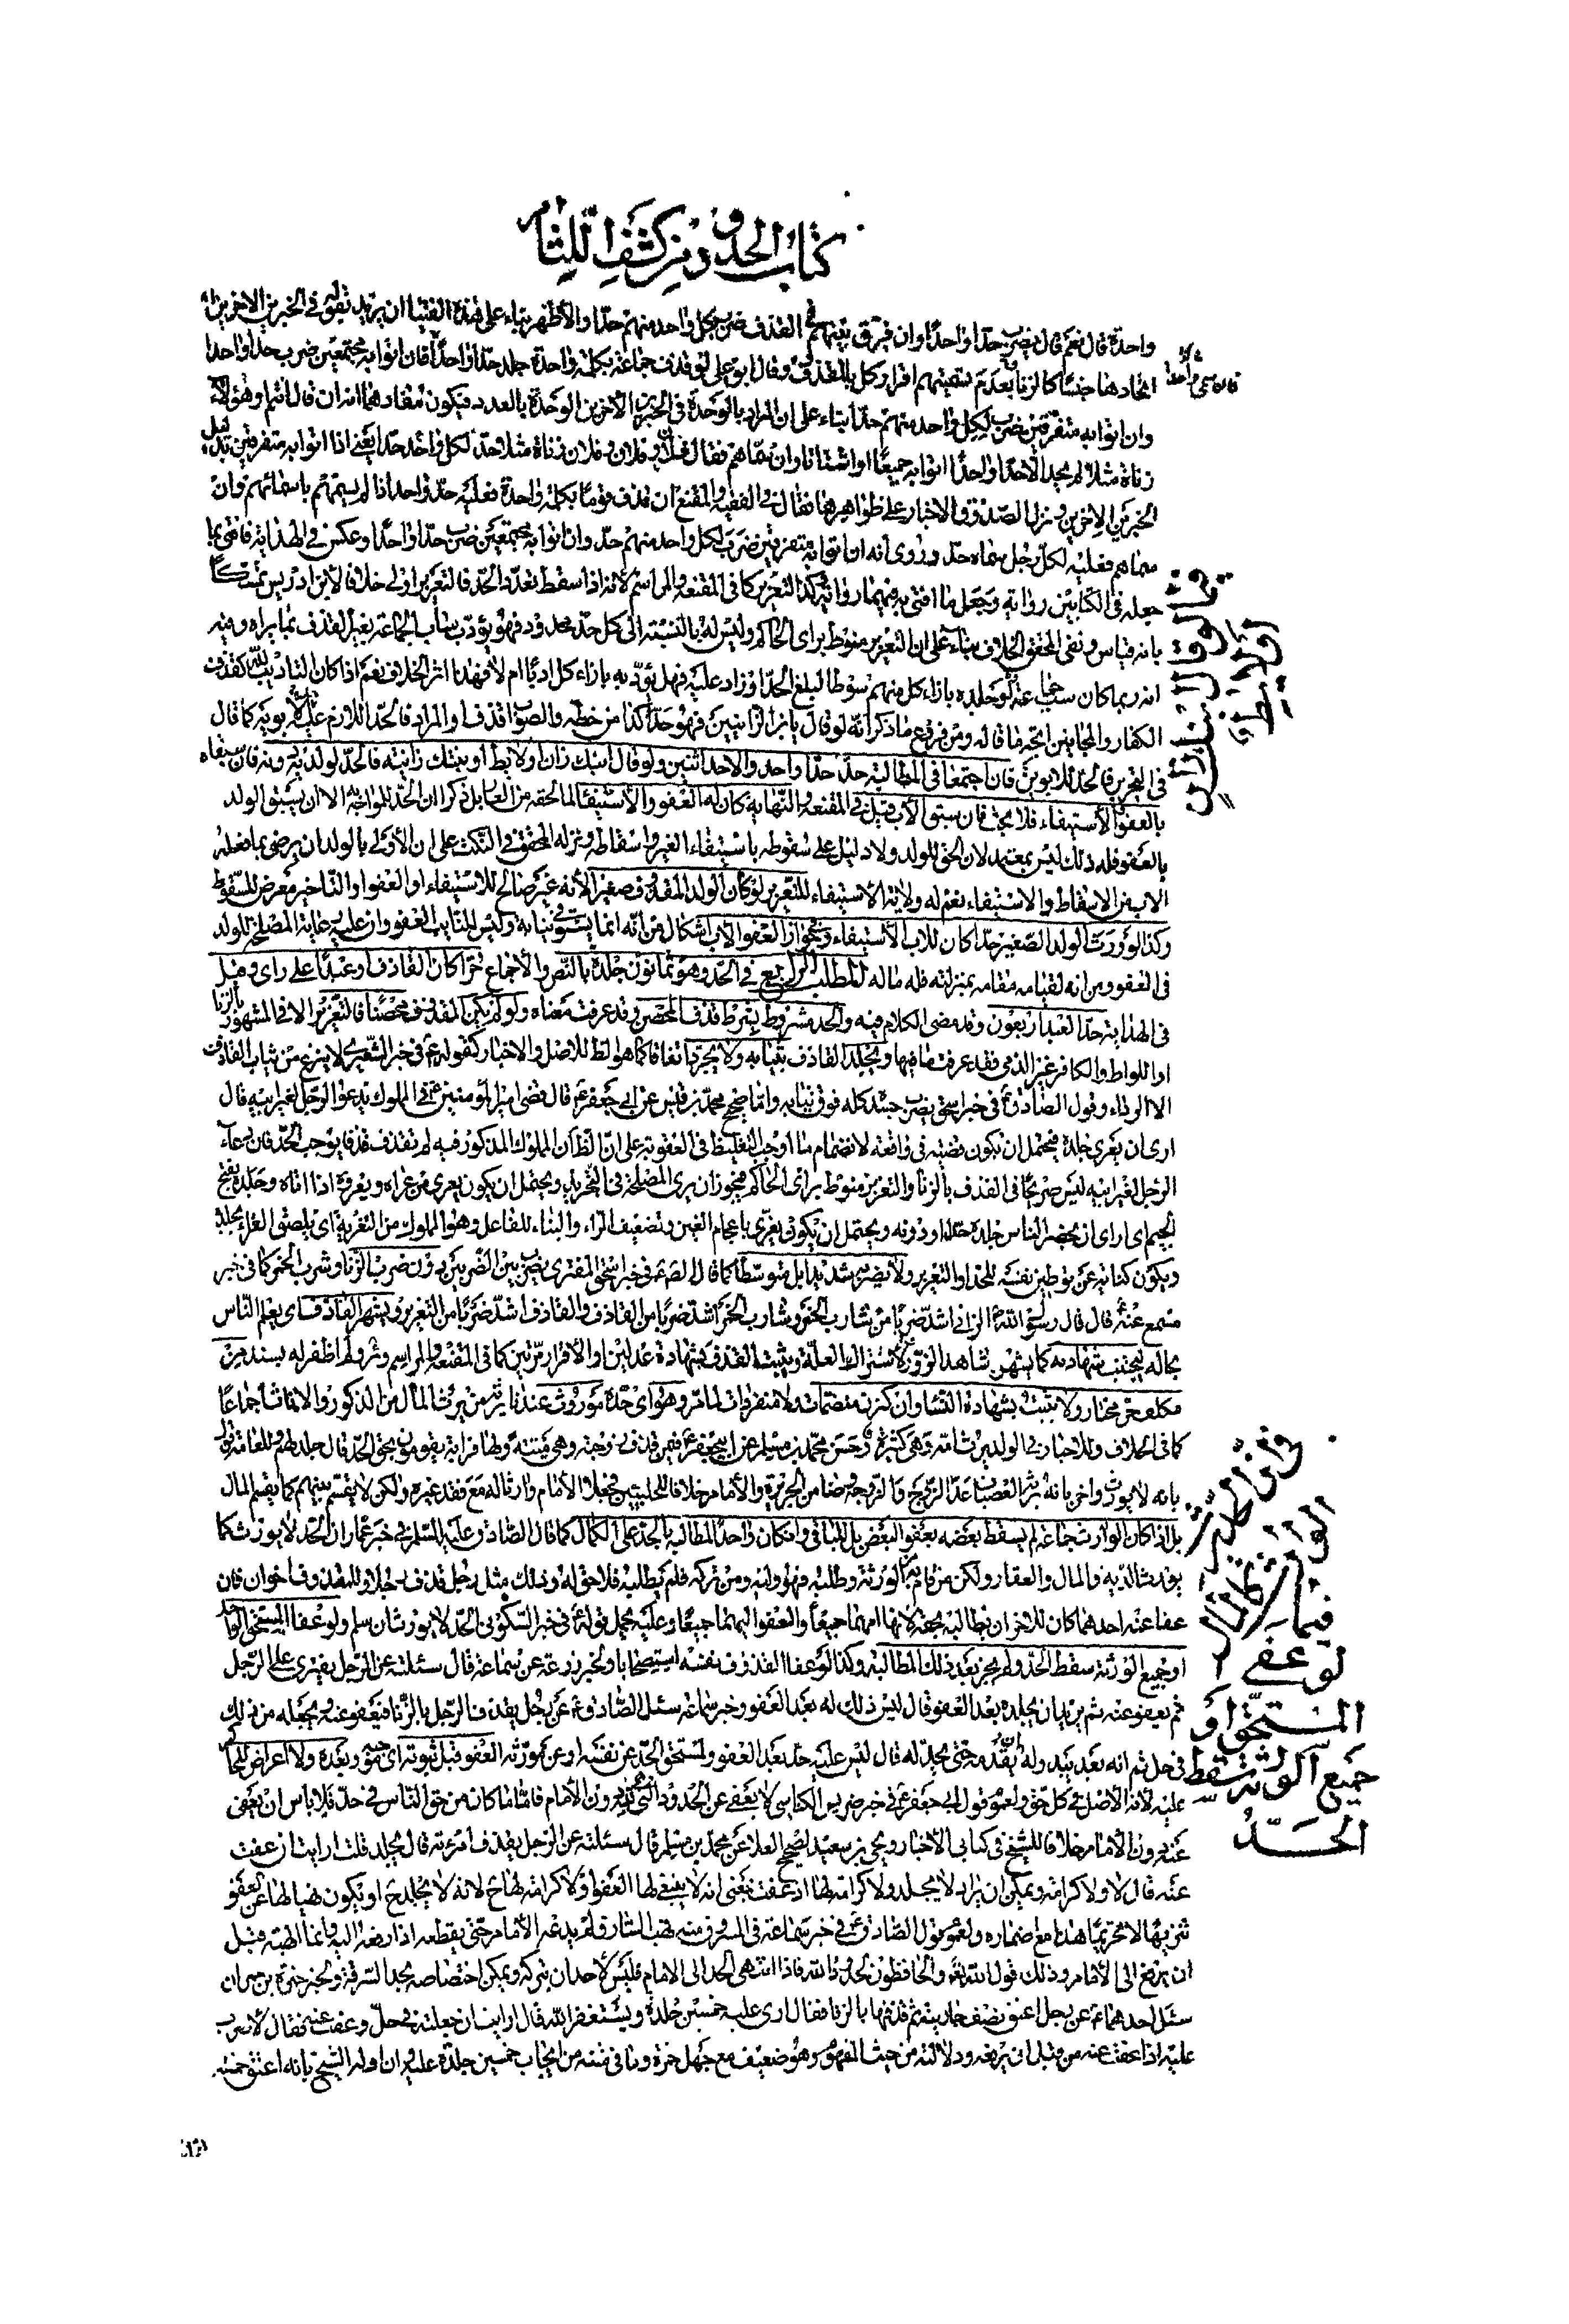 كتاب الحدود من كشف اللثام
واحدة قال نعم قال يضرب حدا واحدا وان فرق بينهم في القذف ضرب لكل واحد منهم حدا والأظهر بناء على هذه الفتيا ان يريد بقوله في الخبرين الاخيرين
وان اتوا به متفرقين ضرب لكل واحد منهم حدا بناء على ان المراد بالوحدة في الخبرين الأخيرين الوحدة بالعدد فيكون مفادهما انه ان قال انتم او هؤلاء
زناة مثلا لم يحد الاحدا واحدا اتوا به جميعا او اشتاتا وان سماهم فقال فلان وفلان وفلان زناة مثلا حد لكل واحد حدا يعني اذا اتوا به متفرقين بدليل
الخبرين الاخرين ونزل الصدوق الاخبار على ظواهرها فقال في الفقيه والمقنع ان قذف قوما بكلمة واحدة فعليه حد واحد اذا لم يسمهم باسمائهم وان
سماهم فعليه لكل رجل سماه حد وروى انه ان اتوا به متفرقين ضرب لكل واحد منهم حد وان اتوا به مجتمعين ضرب حدا واحدا وعكس في الهداية فافتى بما
جعله في الكتابين رواية وجعل ما افتى به فيهما رواية وكذا التعزير كما في المقنعة والمراسم لانه اذا سقط تعدد الحد فالتعزير اولى خلافا لابن ادريس تمسكا
بانه قياس ونفى المحقق الخلاف بناء على ان التعزير منوط براى الحاكم وليس له بالنسبة الى كل حد محدود فهو يؤدب ساب الجماعة بغير القذف بما يراه وفيه
انه ربما كان سب جماعة لو جلده بازاء كل منهم سوطا لبلغ الحد او زاد عليه فهل يؤدبه بازاء كل ادبا ام لا فهذا اثر الخلاف نعم اذا كان التاديب لله كقذف
الكفار والمجانين اتجه ما قاله ومن فروع ما ذكر انه لو قال يا بن الزانيين فهو حد كذا من خطه والصواب قذف او المراد فالحد اللازم عليه للأبوين كما قال
في التحرير فالحد للابوين فان اجتمعا في المطالبة حد حدا واحد والا حد اثنين ولو قال ابنك زان او لائط او بنتك زانية فالحد لولديه دونه فان سبقاه
بالعفو او الأستيفاء فلا بحث فان سبق الأب قيل في المقنعة والنهاية كان له العفو والأستيفاء لما لحقه من العار بل ذكرا ان الحد للمواجه به الا ان يسبق الولد
بالعفو فله ذلك وليس بمعتمد لان الحق للولد ولا دليل على سقوطه باستيفاء الغير واسقاطه ونزله المحقق في النكت على ان الأولى بالولد ان يرضى بما فعله
الاب من الاسقاط والاستيفاء نعم له ولاية الأستيفاء للتعزير لو كان الولد المقذوف صغيرا لأنه غير صالح للاستيفاء او العفو والتاخير معرض للسقوط
وكذا لو ورث الولد الصغير حدا كان للاب الأستيفاء وفي جواز العفو الأب اشكال من انه انما يستوفي نيابة وليس للنايب العفو وان عليه رعاية المصلحة للولد
في العفو ومن انه لقيامه مقامه بمنزلته فله ماله المطلب الرابع في الحد وهو ثمانون جلدة بالنص والأجماع حرا كان القاذف او عبدا على راى وقيل
في الهداية حد العبد اربعون وقد مضى الكلام فيه والحد مشروط بشرط قذف المحصن وقد عرفت معناه ولو لم يكن المقذوف محصنا فالتعزير الا في المشهور بالزنا
او اللواط والكافر غير الذمى فقد عرفت ما فيها ويجلد القاذف بثيابه ولا يجرد اتفاقا كما هو الظ للاصل والاخبار كقوله ع في خبر الشعيرى لا ينزع من ثياب القاذف
الا الرداء وقول الصادق ع في خبر اسحق يضرب جسده كله فوق ثيابه واما صحيح محمد بن قيس عن ابي جعفر ع قال قضى امير المؤمنين ع في المملوك يدعوا الرجل لغير ابيه قال
ارى ان يعرى جلده فيحتمل ان يكون قضيته في واقعة لانضمام ما اوجب التغليظ في العقوبة على ان الظ ان المملوك المذكور فيه لم يقذف قذفا يوجب الحد فان دعاء
الرجل لغير ابيه ليس صريحا في القذف بالزنا والتعزير منوط براى الحاكم فيجوز ان يرى المصلحة في التجريد ويحتمل ان يكون يعرى من عراه ويعروه اذا اتاه وجلده بفتح
الجيم اى ارى ان يحضر الناس جلده حدا او دونه ويحتمل ان يكون يغرى باعجام الغين وتضعيف الراء والبناء للفاعل وهو المملوك من التغرية اى يلصق الغراء بجلده
ويكون كناية عن توطين نفسه للحد او التعزير ولا يضرب شديدا بل متوسطا كما قال الص ع في خبر اسحق المفترى يضرب بين الضربين دون ضرب الزنا وشرب الخمر كما في خبر
مسمع عنه ع قال قال رسول الله ص الزاني اشد ضربا من شارب الخمر وشارب الخمر اشد ضربا من القاذف والقاذف اشد ضربا من التعزير ويشهر القاذف اى يعلم الناس
بحاله ليجتنب شهادته كما يشهر شاهد الزور لاشتراك العلة ويثبت القذف بشهادة عدلين او الأقرار مرتين كما في المقنعة والمراسم وئر ولم اظفر له بسند من
مكلف حر مختار ولا يثبت بشهادة النساء وان كثرن منضمات ولا منفردات لما مر وهو اى حده موروث عندنا يرثه من يرث المال من الذكور والاناث اجماعا
كما في الخلاف وللاخبار في الولد بن شامة وهي كثيرة وحسن محمد بن مسلم عن ابي جعفر ع فيمن قذف زوجته وهي ميتة ولها قرابة يقومون بحق الحد قال جلد لهم وللعامة قول
بانه لا يورث واخر بانه يرثه العصبات عدا الزوج والزوجة وضامن الجريرة والأمام خلافا للحلبيين فجعلا الأمام وارثا له مع فقد غيره ولكن لا يقسم بينهم كما يقسم المال
بل اذا كان الوارث جماعة لم يسقط بعضه بعفو البعض بل للباقي وان كان واحدا المطالبة بالحد على الكمال كما قال الصادق عليه السلم في خبر عمار ان الحد لا يورث كما
يورث الدية والمال والعقار ولكن من قام به من الورثة وطلبه فهو وليه ومن تركه فلم يطلبه فلا حق له وذلك مثل رجل قذف رجلا وللمقذوف اخوان فان
عفا عنه احدهما كان للاخر ان يطالبه بحقه لانها امهما جميعا والعفو اليهما جميعا وعليه يحمل قوله ع في خبر السكوني الحد لا يورث ان سلم ولو عفا المستحق الواحد
او جميع الورثة سقط الحد ولم يجز بعد ذلك المطالبة وكذا لو عفا المقذوف نفسه استصحابا ولخبر زرعة عن سماعة قال سئلته عن الرجل يفترى على الرجل
ثم يعفو عنه ثم يريد ان يجلده بعد العفو قال ليس ذلك له بعد العفو وخبر سماعة سئل الصادق ع عن رجل يقذف الرجل بالزنا فيعفو عنه ويجعله من ذلك
في حل ثم انه بعد يبدو له ان يقدمه حتى يجلد له قال ليس عليه حد بعد العفو ولمستحق الحد عن نفسه او عن مورثه العفو قبل ثبوته اى حقه وبعده ولا اعتراض للحاكم
عليه لانه الأصل في كل حق ولعموم قول ابي جعفر ع في خبر ضريس الكناسي لا يعفى عن الحدود التي لله دون الأمام فاما ما كان من حق الناس في حد فلا باس ان يعفى
عنه دون الأمام خلافا للشيخ في كتابي الأخبار ويحيى بن سعيد لصحيح العلا عن محمد بن مسلم قال سئلته عن الرجل يقذف امرءته قال يجلد قلت ارايت ان عفت
عنه قال لا ولا كرامة ويمكن ان يراد لا يجلد ولا كرامة لها اذ عفت بمعنى انه لا ينبغي لها العفو ولا كرامة لها ح لانه لا يجلد ح او يكون نهيا لها عن العفو
تنزيها لا تحريما هذا مع اضماره ولعموم قول الصادق ع في خبر سماعة في المسروق منه يهب السارق لم يدعه الأمام حتى يقطعه اذا رفعه اليه وانما الهبة قبل
ان يرفع الى الأمام وذلك قول الله تعالى والحافظون لحدود الله فاذا انتهى الحد الى الامام فليس لأحد ان يتركه ويمكن اختصاصه بحد السرقة ولخبر حمزة بن حمران
سئل احدهما ع عن رجل اعتق نصف جاريته ثم قذفها بالزنا فقال ارى عليه خمسين جلدة ويستغفر الله قال ارايت ان جعلته في حل وعفت عنه فقال لا ضرب
عليه اذا عفت عنه من قبل ان يرفعه ودلالته من حيث المفهوم وهو ضعيف مع جهل حمزة وما في متنه من ايجاب خمسين جلدة عليه وان اوله الشيخ بانه اعتق خمسة
لو عفى
المستحق او
جميع الورثة سقط
الحد